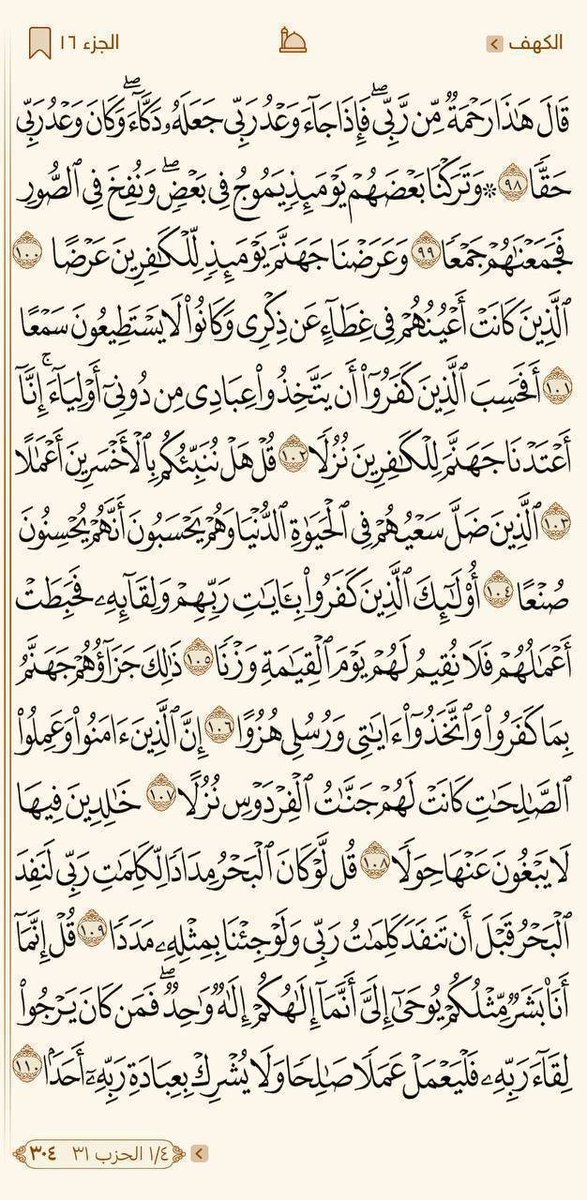 الكهف
الجزء ١٦
قَالَ هَٰذَا رَحْمَةٌ مِّن رَّبِّىۖ فَإِذَا جَآءَ وَعْدُ رَبِّى جَعَلَهُۥ دَكَّآءَۖ وَكَانَ وَعْدُ رَبِّى
حَقًّا ٩٨ ۞ وَتَرَكْنَا بَعْضَهُمْ يَوْمَئِذٍ يَمُوجُ فِى بَعْضٍۖ وَنُفِخَ فِى ٱلصُّورِ
فَجَمَعْنَٰهُمْ جَمْعًا ٩٩ وَعَرَضْنَا جَهَنَّمَ يَوْمَئِذٍ لِّلْكَٰفِرِينَ عَرْضًا ١٠٠
ٱلَّذِينَ كَانَتْ أَعْيُنُهُمْ فِى غِطَآءٍ عَن ذِكْرِى وَكَانُوا۟ لَا يَسْتَطِيعُونَ سَمْعًا
١٠١ أَفَحَسِبَ ٱلَّذِينَ كَفَرُوٓا۟ أَن يَتَّخِذُوا۟ عِبَادِى مِن دُونِىٓ أَوْلِيَآءَۚ إِنَّآ
أَعْتَدْنَا جَهَنَّمَ لِلْكَٰفِرِينَ نُزُلًا ١٠٢ قُلْ هَلْ نُنَبِّئُكُم بِٱلْأَخْسَرِينَ أَعْمَٰلًا
١٠٣ ٱلَّذِينَ ضَلَّ سَعْيُهُمْ فِى ٱلْحَيَوٰةِ ٱلدُّنْيَا وَهُمْ يَحْسَبُونَ أَنَّهُمْ يُحْسِنُونَ
صُنْعًا ١٠٤ أُو۟لَٰٓئِكَ ٱلَّذِينَ كَفَرُوا۟ بِـَٔايَٰتِ رَبِّهِمْ وَلِقَآئِهِۦ فَحَبِطَتْ
أَعْمَٰلُهُمْ فَلَا نُقِيمُ لَهُمْ يَوْمَ ٱلْقِيَٰمَةِ وَزْنًا ١٠٥ ذَٰلِكَ جَزَآؤُهُمْ جَهَنَّمُ
بِمَا كَفَرُوا۟ وَٱتَّخَذُوٓا۟ ءَايَٰتِى وَرُسُلِى هُزُوًا ١٠٦ إِنَّ ٱلَّذِينَ ءَامَنُوا۟ وَعَمِلُوا۟
ٱلصَّٰلِحَٰتِ كَانَتْ لَهُمْ جَنَّٰتُ ٱلْفِرْدَوْسِ نُزُلًا ١٠٧ خَٰلِدِينَ فِيهَا
لَا يَبْغُونَ عَنْهَا حِوَلًا ١٠٨ قُل لَّوْ كَانَ ٱلْبَحْرُ مِدَادًا لِّكَلِمَٰتِ رَبِّى لَنَفِدَ
ٱلْبَحْرُ قَبْلَ أَن تَنفَدَ كَلِمَٰتُ رَبِّى وَلَوْ جِئْنَا بِمِثْلِهِۦ مَدَدًا ١٠٩ قُلْ إِنَّمَآ
أَنَا۠ بَشَرٌ مِّثْلُكُمْ يُوحَىٰٓ إِلَىَّ أَنَّمَآ إِلَٰهُكُمْ إِلَٰهٌ وَٰحِدٌۖ فَمَن كَانَ يَرْجُوا۟
لِقَآءَ رَبِّهِۦ فَلْيَعْمَلْ عَمَلًا صَٰلِحًا وَلَا يُشْرِكْ بِعِبَادَةِ رَبِّهِۦٓ أَحَدًۢا ١١٠
١/٤ الحزب ٣١ ٣٠٤